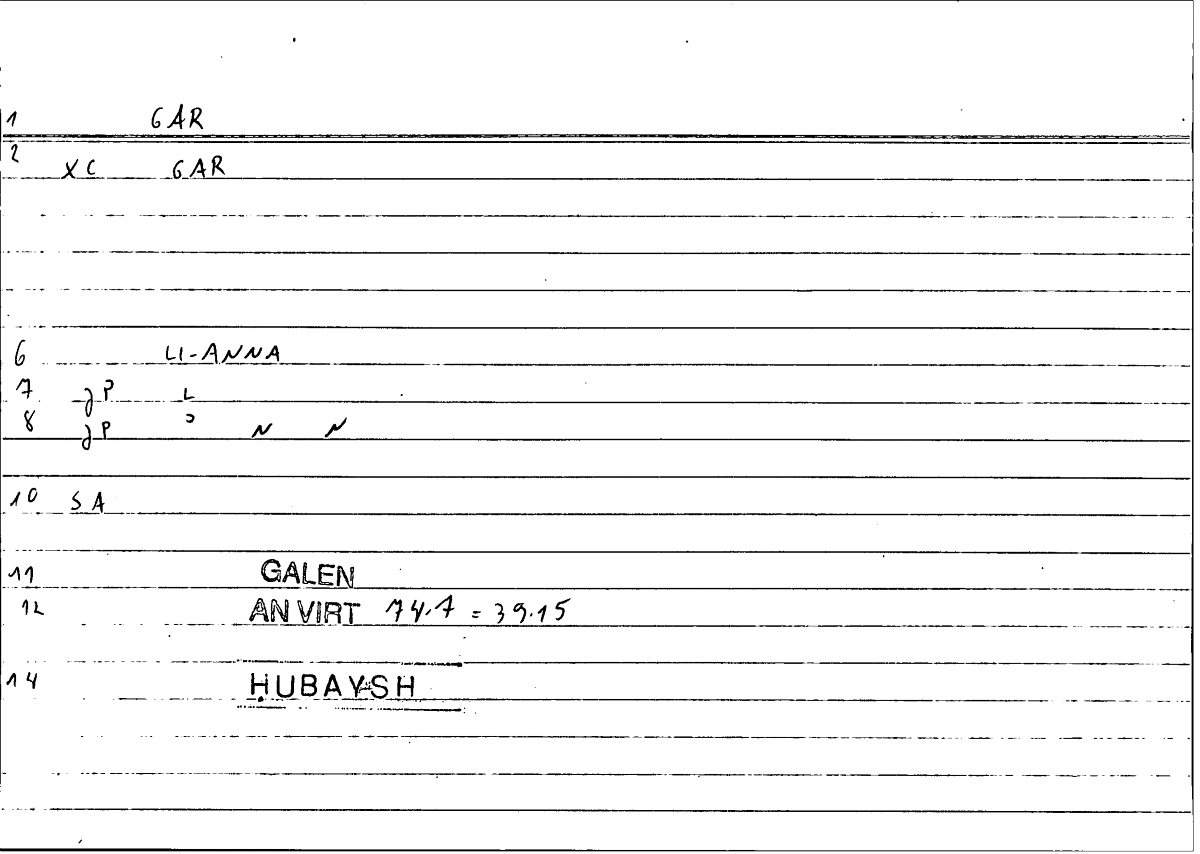 1 GAR
2 XC GAR
6 LI-ANNA
7 JP L
8 JP Ɔ N N
10 SA
11 GALEN
12 AN VIRT 74.7 = 39.15
14 ḤUBAYSH